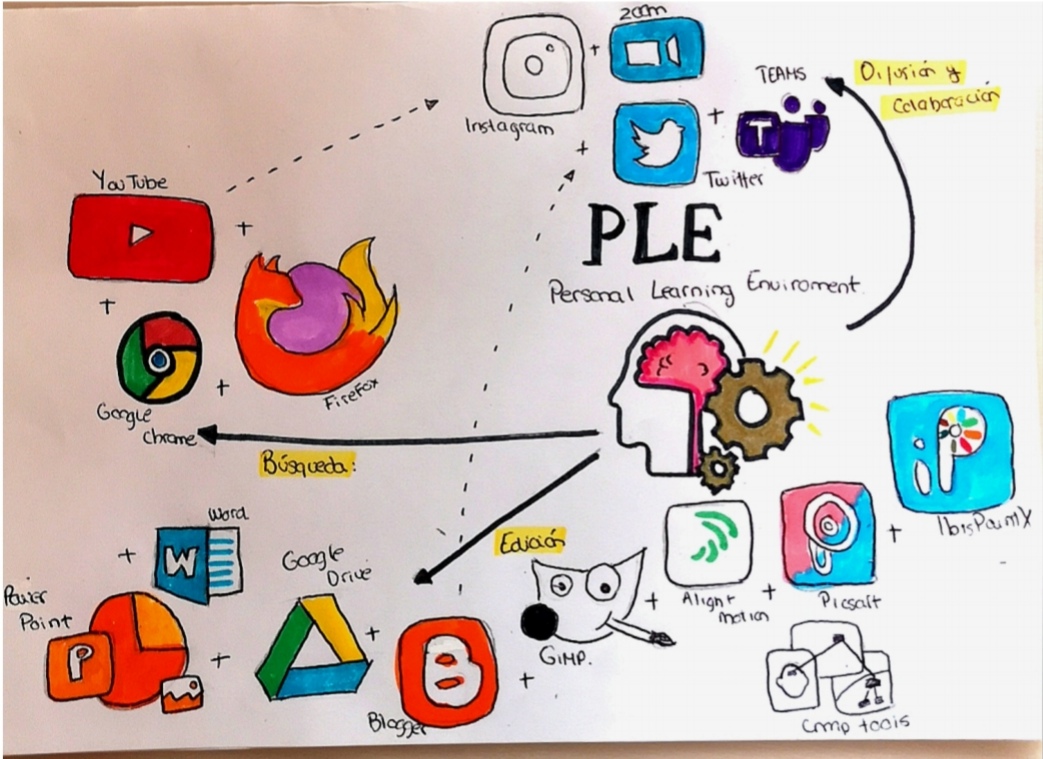 zoom
Instagram
TEAMS
Difusión y
Colaboración
T
Twitter
YouTube
PLE
Personal Learning Enviroment.
FireFox
Google
Chrome
Búsqueda:
iP
IbisPaintX
Word
W
Edición
Google
Drive
Power
Point
P
Alight
motion
Picsart
GIMP.
B
Blogger
Cmap tools